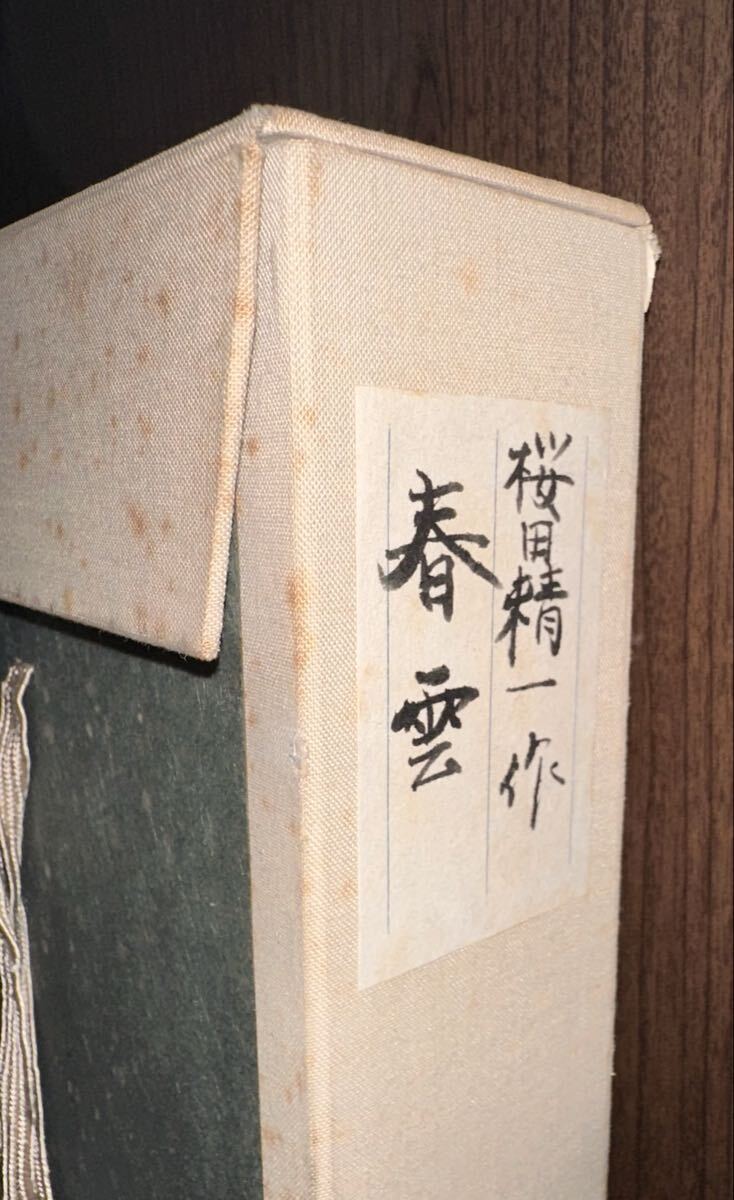 桜田精一作
春雲